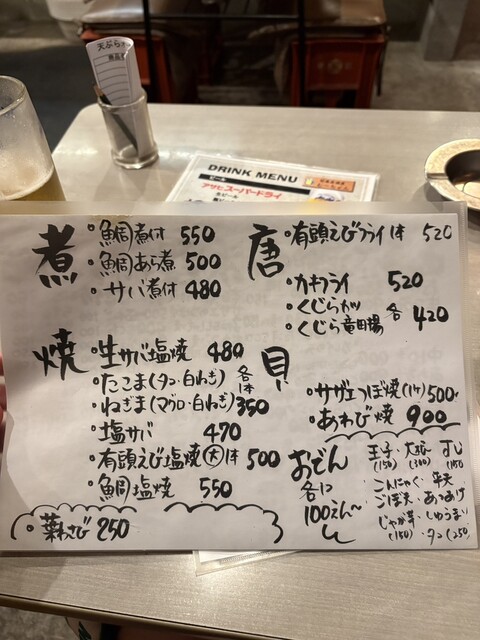 天ぷら
DRINK MENU
ビール
アサヒスーパードライ
煮
・鯛煮付 550
・鯛あら煮 500
・サバ煮付 480
焼
・生サバ塩焼 480
・たこま(タコ・白ねぎ)
・ねぎま(マグロ・白ねぎ) 各1本 350
・塩サバ 470
・有頭えび塩焼(大)1本 500
・鯛塩焼 550
・葉わさび 250
唐
・有頭えびフライ1本 520
・カキフライ 520
・くじらカツ
・くじら竜田揚 各 420
貝
・サザエつぼ焼(1ケ) 500
・あわび焼 900
おでん
各に
100えん〜
玉子(150)・大根(300)・すじ(150)
・こんにゃく・平天
・ごぼ天・あつあげ
・じゃが芋(150)・しゅうまい
・タコ(250)